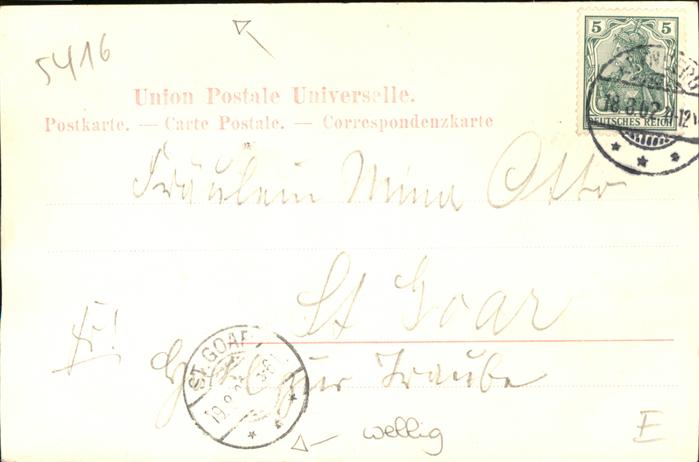 5416
Union Postale Universelle.
Postkarte. — Carte Postale. — Correspondenzkarte
5 5
DEUTSCHES REICH
18.8.02 11-12V
Fräulein Mina Otto
St Goar
fr!
Hotel zur Traube
ST. GOAR
19.8.02
wellig
E